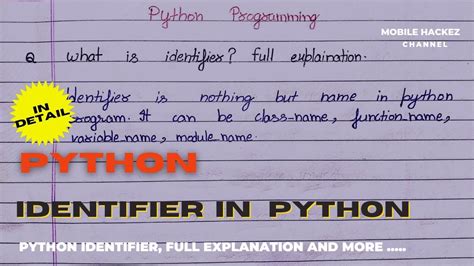 Python Programming
MOBILE HACKEZ
CHANNEL
Q what is identifier? full explaination.
IN
DETAIL
Identifier is nothing but name in python
program. It can be class-name, function_name,
variable_name, module_name.
PYTHON
IDENTIFIER IN PYTHON
PYTHON IDENTIFIER, FULL EXPLANATION AND MORE .....